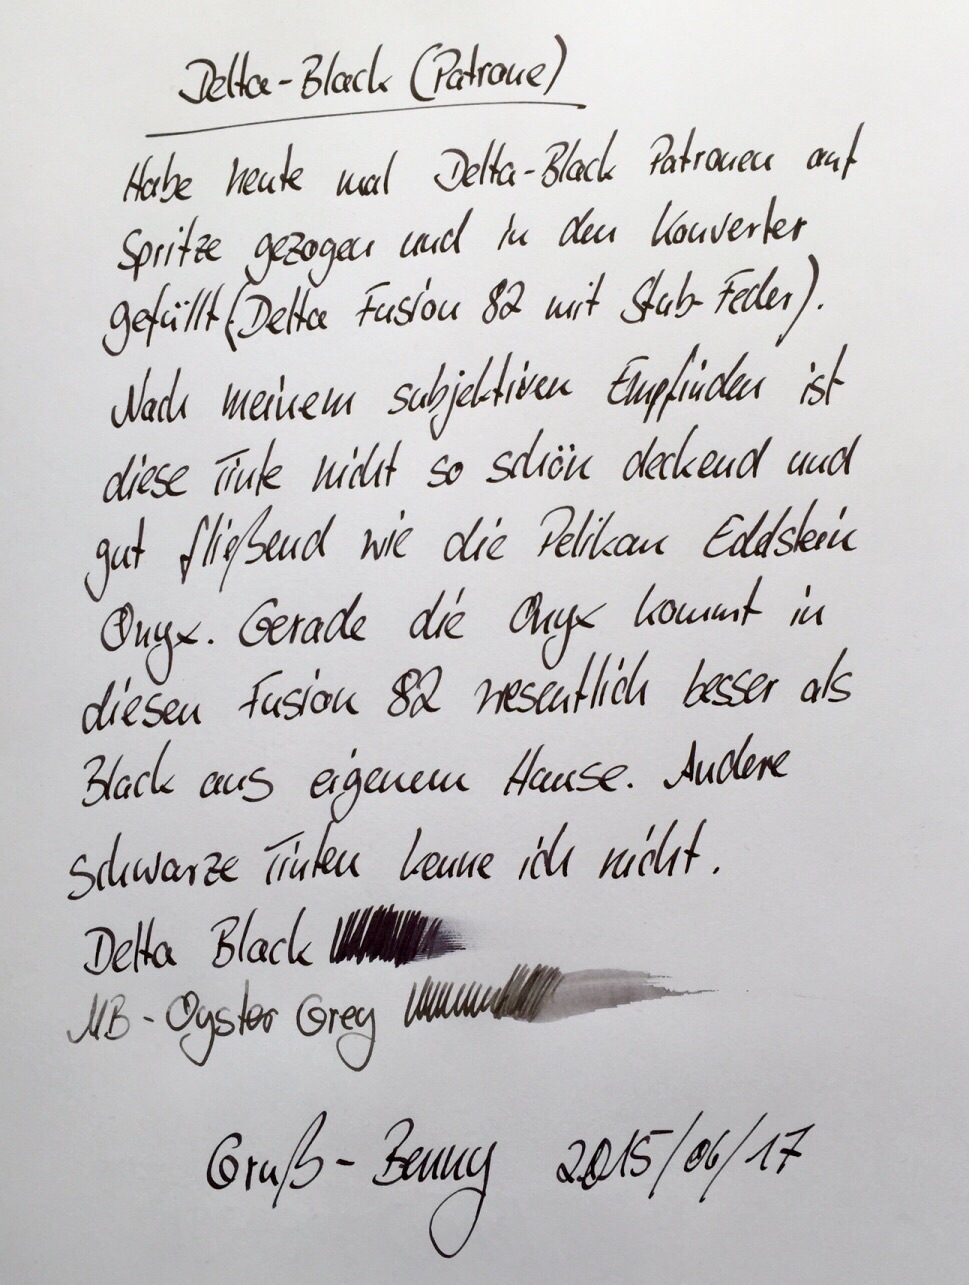 Delta-Black (Patrone)
Habe heute mal Delta-Black Patronen auf
Spritze gezogen und in den Konverter
gefüllt (Delta Fusion 82 mit Stub-Feder).
Nach meinem subjektiven Empfinden ist
diese Tinte nicht so schön deckend und
gut fließend wie die Pelikan Edelstein
Onyx. Gerade die Onyx kommt in
diesen Fusion 82 wesentlich besser als
Black aus eigenem Hause. Andere
schwarze Tinten kenne ich nicht.
Delta Black
MB-Oyster Grey
Gruß-Benny 2015/06/17